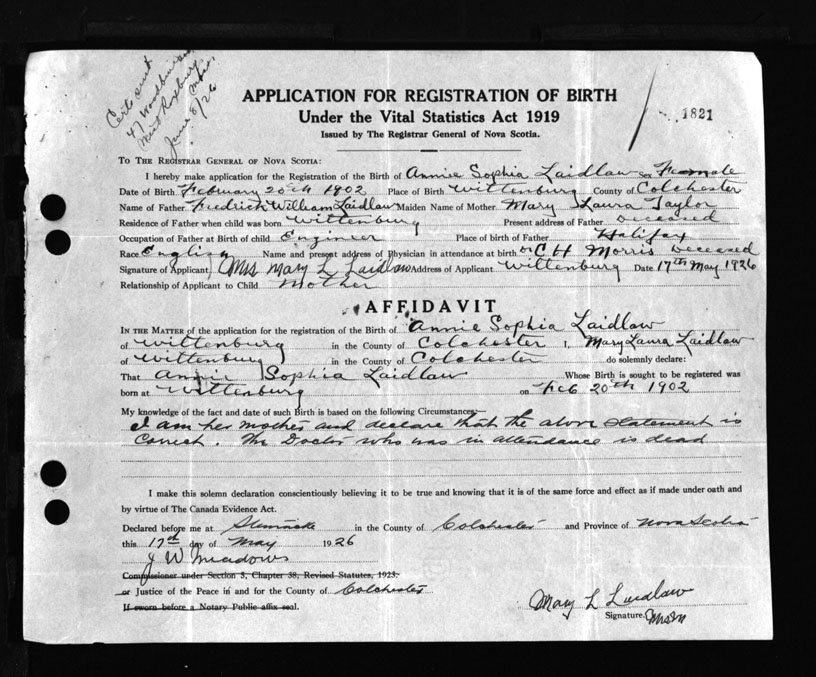 Cert sent
47
West Roxbury
Mass.
June 8/26
APPLICATION FOR REGISTRATION OF BIRTH
1821
Under the Vital Statistics Act 1919
Issued by The Registrar General of Nova Scotia.
To The Registrar General of Nova Scotia:
I hereby make application for the Registration of the Birth of Annie Sophia Laidlaw sex Female
Date of Birth February 20th 1902 Place of Birth Wittenburg County of Colchester
Name of Father Fredrick William Laidlaw Maiden Name of Mother Mary Laura Taylor
Residence of Father when child was born Wittenburg Present address of Father Deceased
Occupation of Father at Birth of child Engineer Place of Birth of Father Halifax
Race English Name and present address of Physician in attendance at birth Dr C H Morris Deceased
Signature of Applicant Mrs Mary L Laidlaw Address of Applicant Wittenburg Date 17th May 1926
Relationship of Applicant to Child Mother
AFFIDAVIT
In the Matter of the application for the registration of the Birth of Annie Sophia Laidlaw
of Wittenburg in the County of Colchester I, Mary Laura Laidlaw
of Wittenburg in the County of Colchester do solemnly declare:
That Annie Sophia Laidlaw Whose Birth is sought to be registered was
born at Wittenburg on Feb 20th 1902
My knowledge of the fact and date of such Birth is based on the following Circumstances:—
I am her mother and declare that the above statement is
Correct. The Doctor who was in attendance is dead
I make this solemn declaration conscientiously believing it to be true and knowing that it is of the same force and effect as if made under oath and
by virtue of The Canada Evidence Act.
Declared before me at Stewiacke in the County of Colchester and Province of Nova Scotia
this 17th day of May 1926
J W Meadows
Commissioner under Section 3, Chapter 38, Revised Statutes, 1923.
or Justice of the Peace in and for the County of Colchester
If sworn before a Notary Public affix seal.
Mary L Laidlaw
Signature.